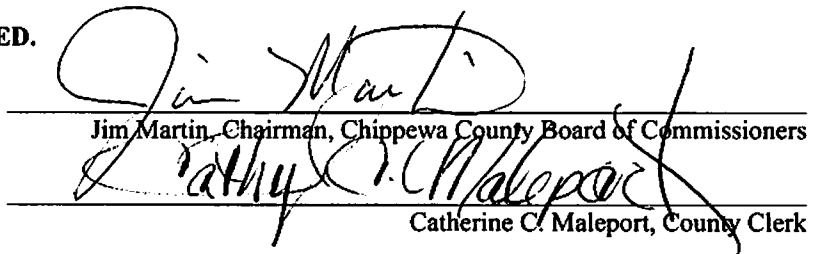 ED.
Jim Martin
Jim Martin, Chairman, Chippewa County Board of Commissioners
Cathy C. Maleport
Catherine C. Maleport, County Clerk